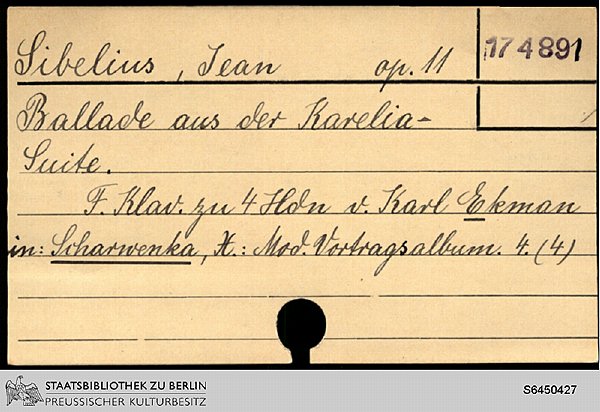 Sibelius, Jean op. 11
174891
Ballade aus der Karelia-
Suite.
F. Klav. zu 4 Hdn v. Karl Ekman
in: Scharwenka, X.: Mod. Vortragsalbum. 4. (4)
STAATSBIBLIOTHEK ZU BERLIN
PREUSSISCHER KULTURBESITZ
S6450427